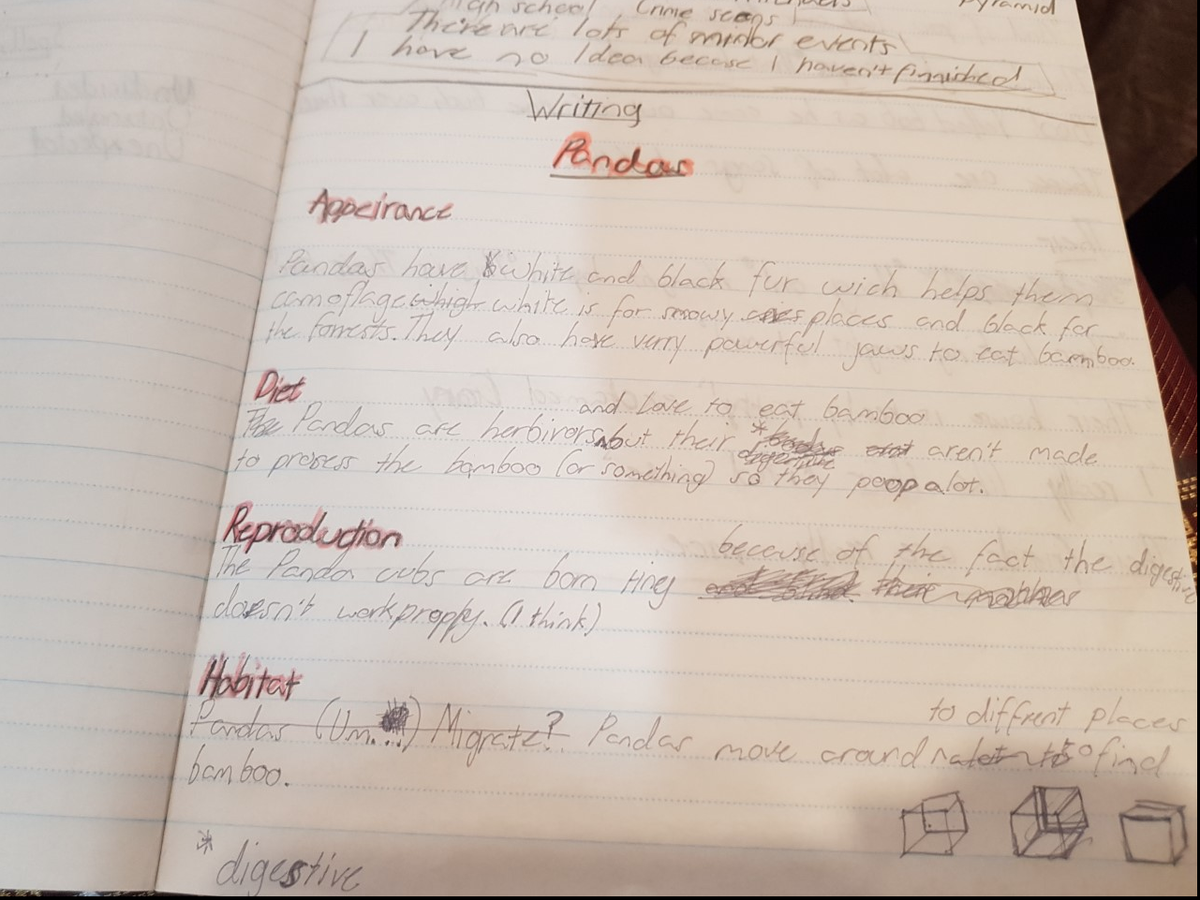 high school Crime scens
pyramid
There are lots of minor events
I have no Idea becase I haven't finnished
Writing
Pandas
Appeirance
Pandas have white and black fur wich helps them
camoflage whigh white is for snowy places and black for
the forrests. They also have verry powerful jaws to eat bamboo.
Diet
and love to eat bamboo
The Pandas are herbivors but their * digestive aren't made
to prosess the bamboo (or something) so they poop alot.
Reproduction
because of the fact the digestive
The Panda cubs are born tiney
doesn't work proppy. (I think)
Habitat
to diffrent places
Pandas (Um....) Migrate? Pandas move around to find
bamboo.
* digestive